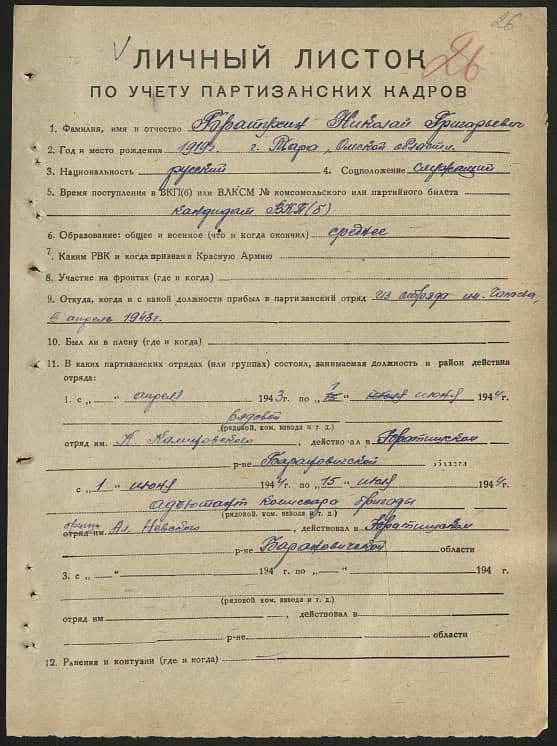 26
26
ЛИЧНЫЙ ЛИСТОК
ПО УЧЕТУ ПАРТИЗАНСКИХ КАДРОВ
1. Фамилия, имя и отчество Братухин Николай Григорьевич
2. Год и место рождения 1919г. г. Тара, Омской области.
3. Национальность русский 4. Соцположение служащий
5. Время поступления в ВКП(б) или ВЛКСМ № комсомольского или партийного билета
кандидат ВКП(б)
6. Образование: общее и военное (что и когда окончил) среднее
7. Каким РВК и когда призван в Красную Армию
8. Участие на фронтах (где и когда)
9. Откуда, когда и с какой должности прибыл в партизанский отряд из отряда им. Чапаева,
в апреле 1943г.
10. Был ли в плену (где и когда)
11. В каких партизанских отрядах (или группах) состоял, занимаемая должность и район действия
отряда:
1. с „ “ апреля 1943г. по „1“ июня 1944г.
рядовой
(рядовой, ком. взвода и т. д.)
отряд им. К. Калиновского, действовал в
р-не Барановичской области
с „1“ июня 1944г. по „15“ июля 1944г.
адъютант комиссара бригады
(рядовой ком. взвода и т. д.)
отряд им. Ал. Невского, действовал в
р-не Барановичской области
3. с „ “ 194 г. по „ “ 194 г.
(рядовой ком. взвода и т. д.)
отряд им , действовал в
р-не области
12. Ранения и контузии (где и когда)